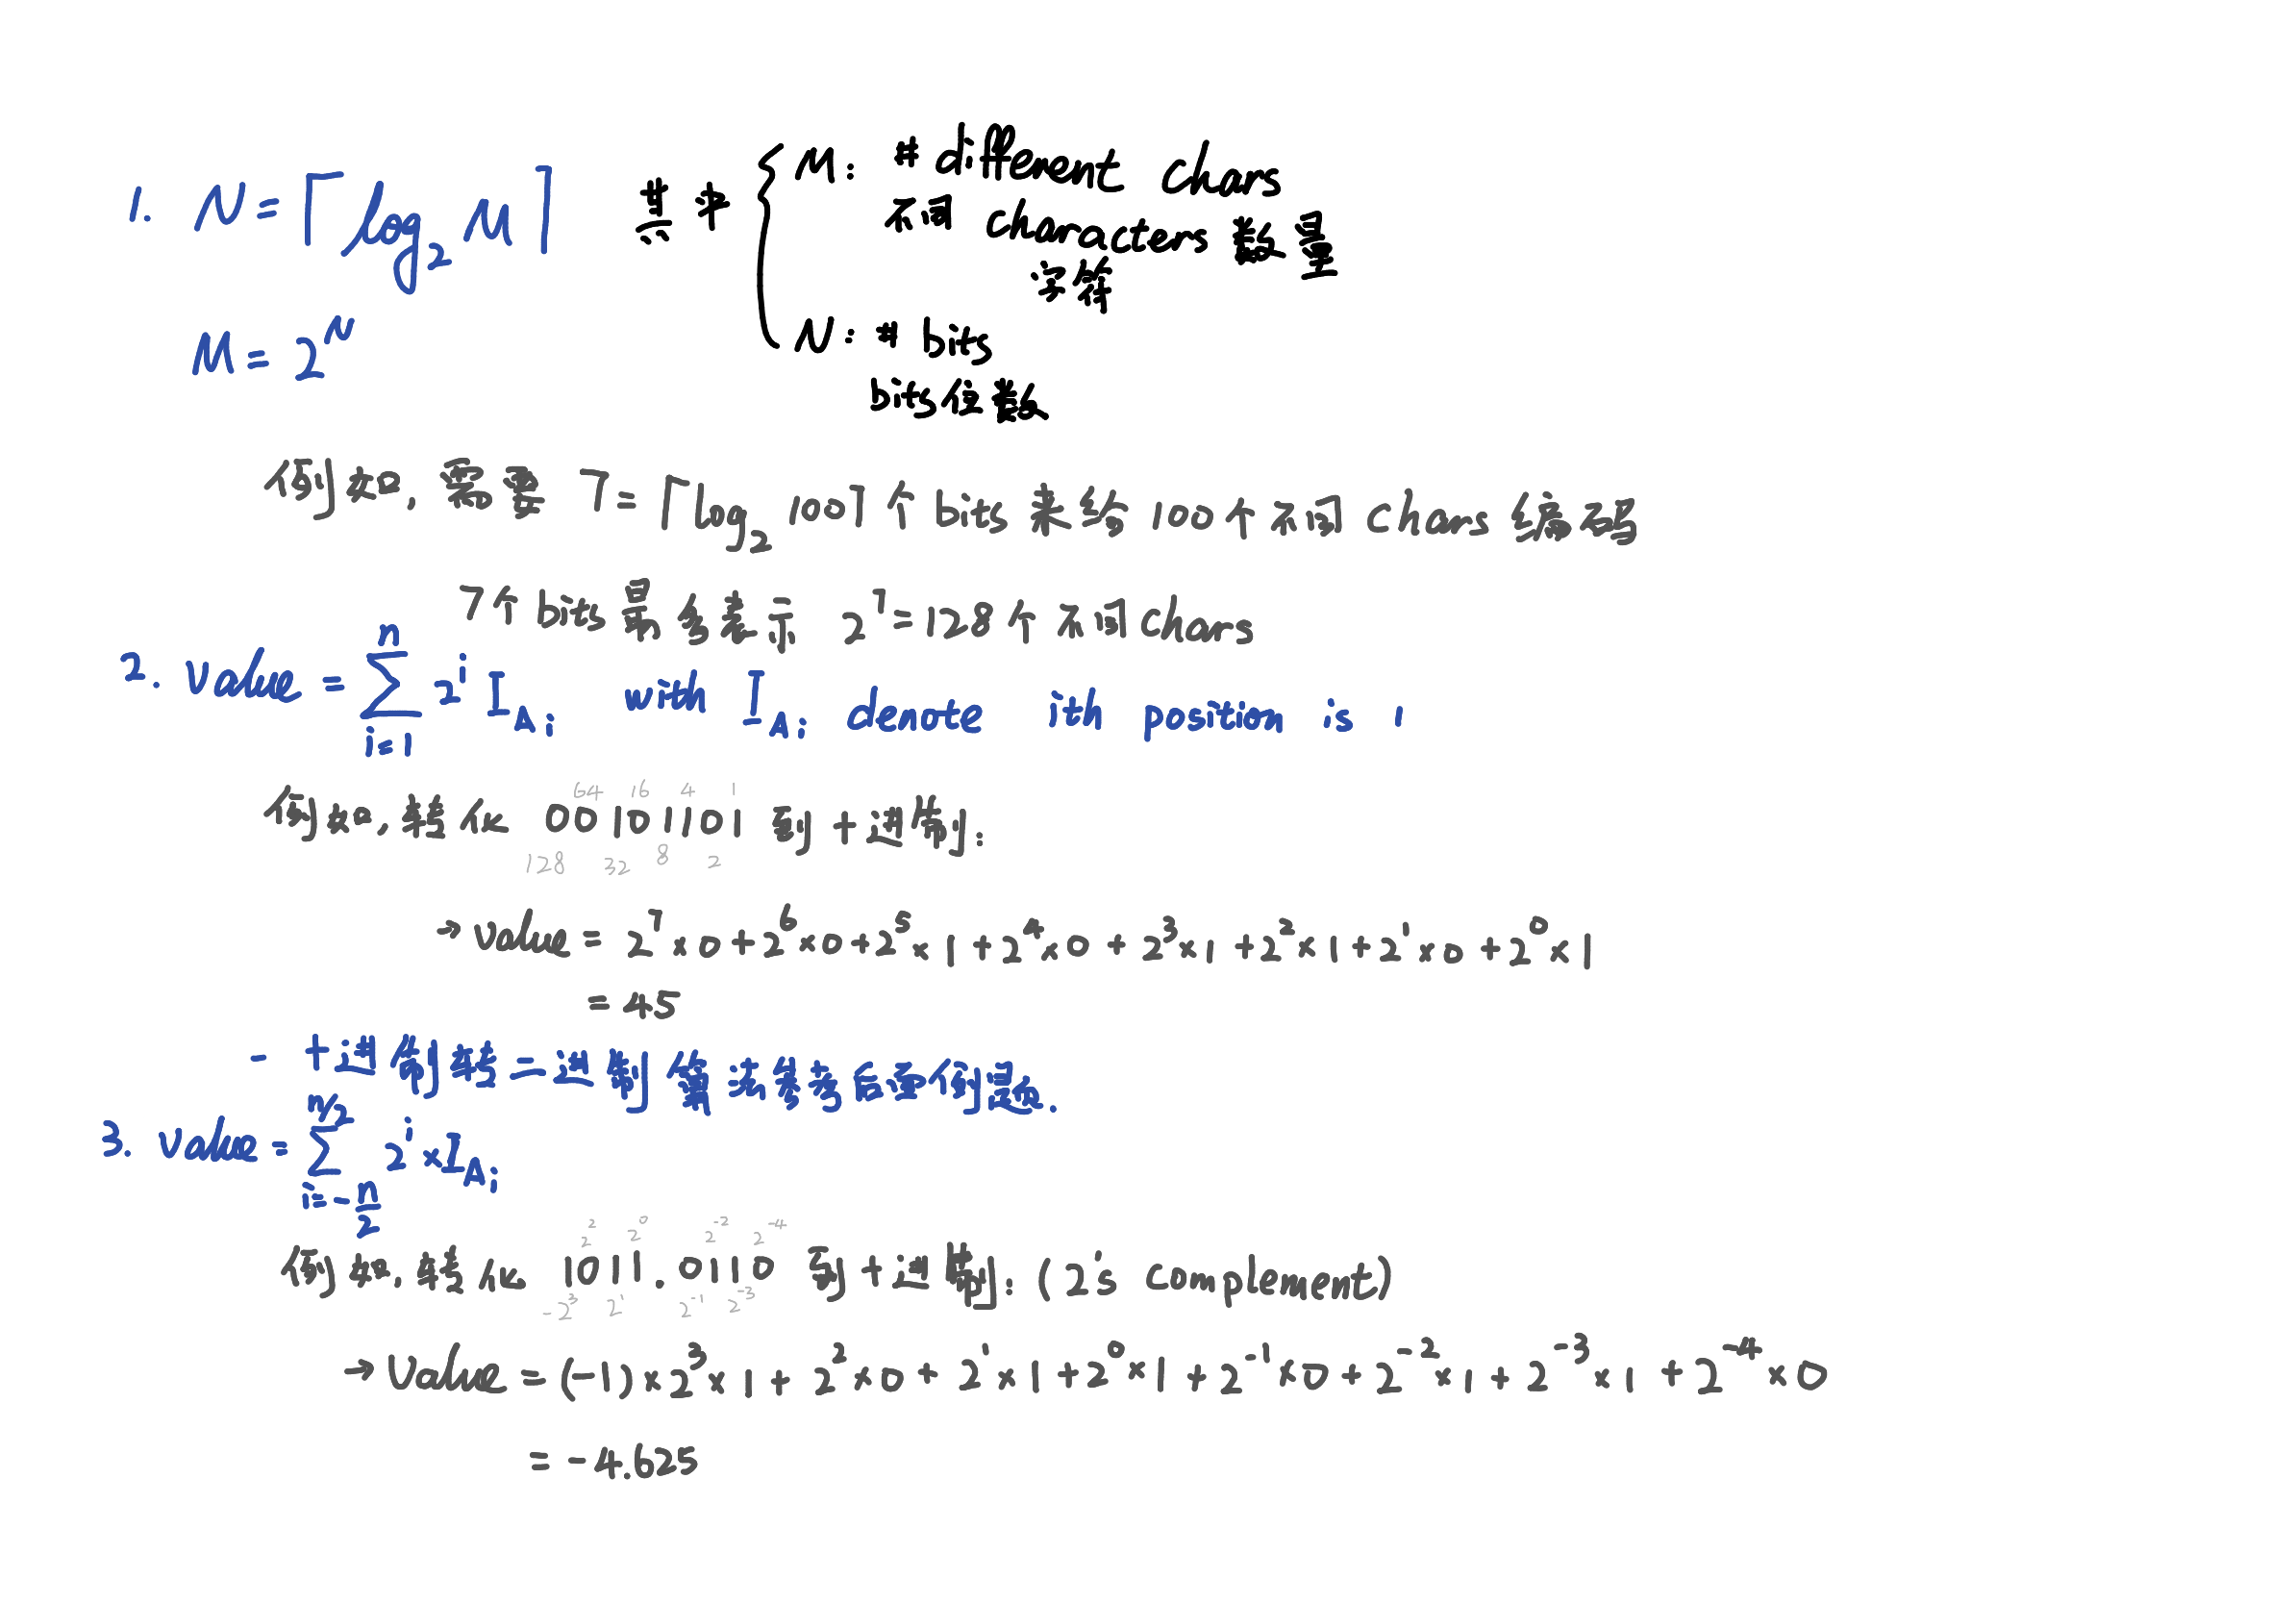 1. N = ⌈log₂ M⌉ 其中 { M: # different chars
不同 characters 数量
字符
M = 2ᴺ
N: # bits
bits位数
例如, 需要 7 = ⌈log₂ 100⌉ 个 bits 来给 100个不同 chars 编码
7个bits最多表示 2⁷=128个不同chars
2. value = ∑ⁿᵢ₌₁ 2ⁱ I_Aᵢ with I_Aᵢ denote ith position is 1
64 16 4 1
例如, 转化 00101101 到十进制:
128 32 8 2
→ value = 2⁷×0+2⁶×0+2⁵×1+2⁴×0+2³×1+2²×1+2¹×0+2⁰×1
= 45
- 十进制转二进制算法参考后面例题.
3. value = ∑_{i=-n/2}^{n/2} 2ⁱ×I_Aᵢ
2² 2⁰ 2⁻² 2⁻⁴
例如, 转化 1011.0110 到十进制: (2's complement)
-2³ 2¹ 2⁻¹ 2⁻³
→ Value = (-1)×2³×1+2²×0+2¹×1+2⁰×1+2⁻¹×0+2⁻²×1+2⁻³×1+2⁻⁴×0
= -4.625